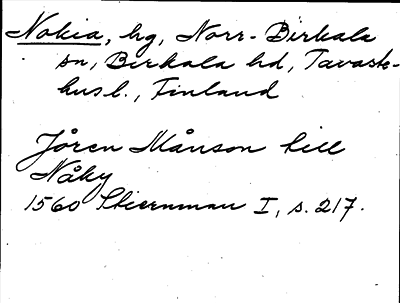 Nokia, hg, Norr-Birkala
sn, Birkala hd, Tavaste-
husl., Finland
Jören Månson till
Nåky
1560 Stiernman I, s. 217.